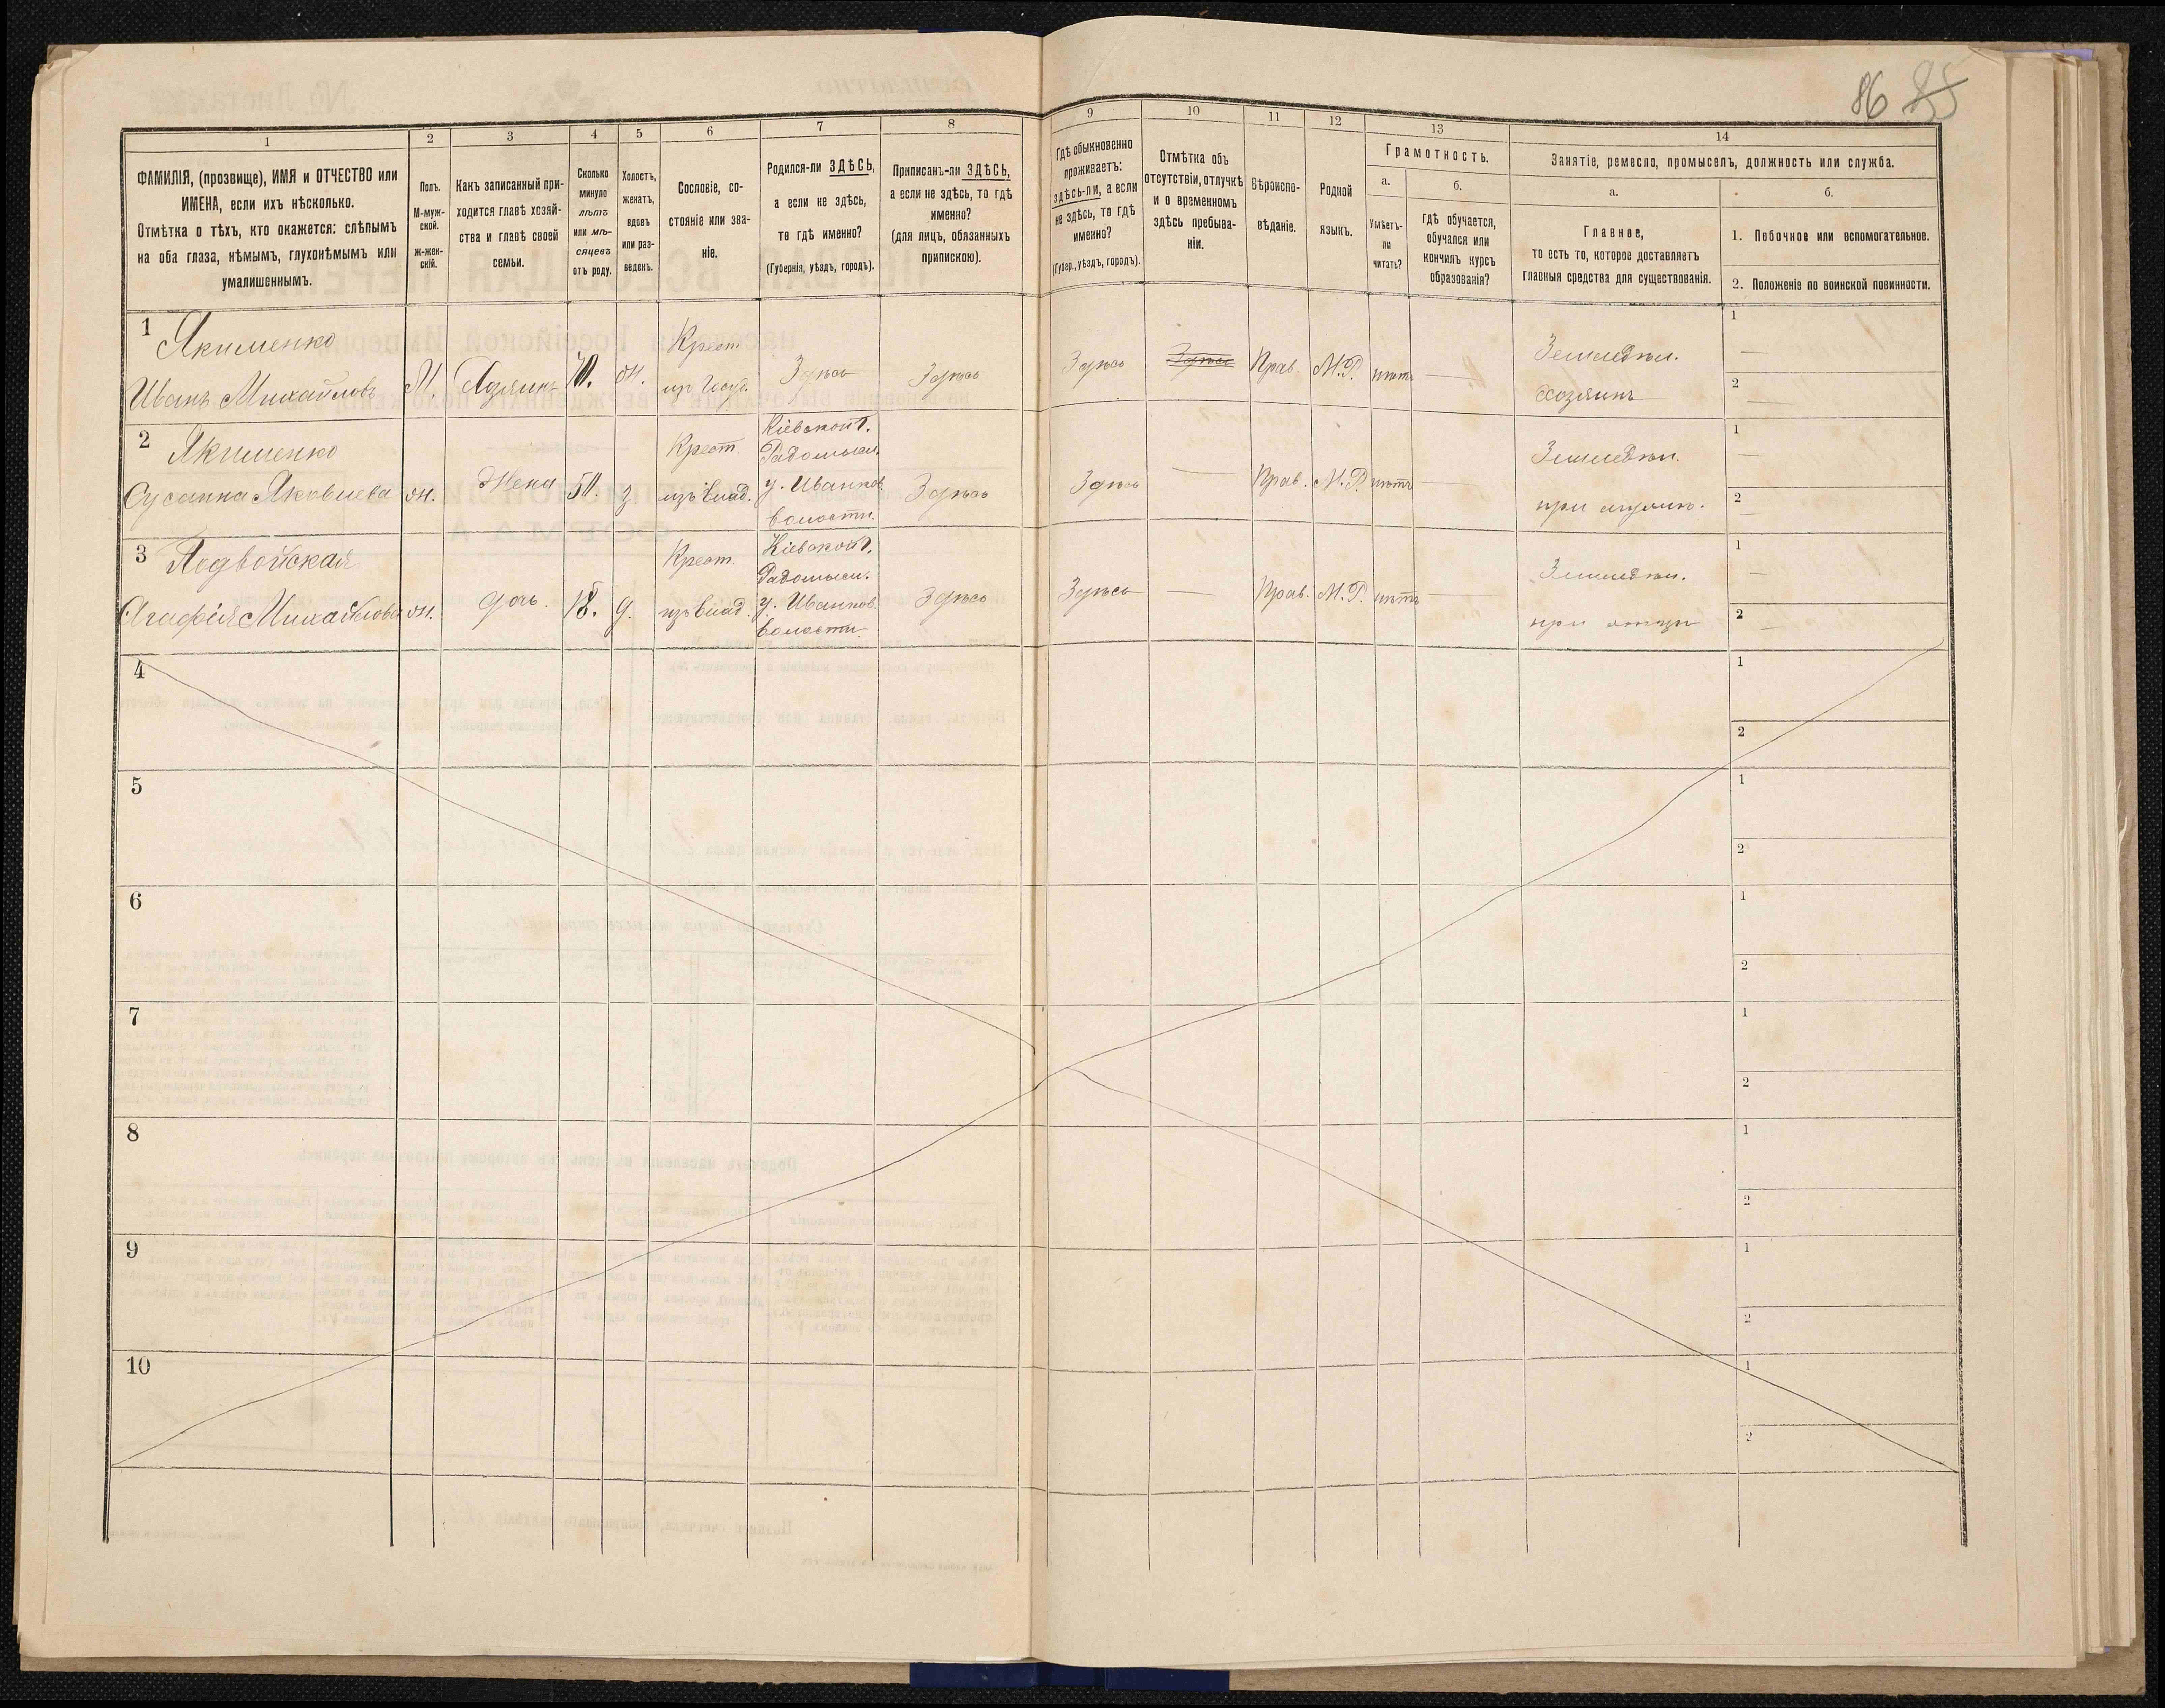 86 85
1
2
3
4
5
6
7
8
9
10
11
12
13
14
ФАМИЛІЯ, (прозвище), ИМЯ и ОТЧЕСТВО или
ИМЕНА, если ихъ нѣсколько.
Отмѣтка о тѣхъ, кто окажется: слѣпымъ
на оба глаза, нѣмымъ, глухонѣмымъ или
умалишеннымъ.
Полъ.
М-муж-
ской.
Ж-жен-
скій.
Какъ записанный при-
ходится главѣ хозяй-
ства и главѣ своей
семьи.
Сколько
минуло
лѣтъ
или мѣ-
сяцевъ
отъ роду.
Холостъ,
женатъ,
вдовъ
или раз-
веденъ.
Сословіе, со-
стояніе или зва-
ніе.
Родился-ли ЗДѢСЬ,
а если не здѣсь,
то гдѣ именно?
(Губернія, уѣздъ, городъ).
Приписанъ-ли ЗДѢСЬ,
а если не здѣсь, то гдѣ
именно?
(для лицъ, обязанныхъ
припискою).
Гдѣ обыкновенно
проживаетъ:
здѣсь-ли, а если
не здѣсь, то гдѣ
именно?
(Губер., уѣздъ, городъ).
Отмѣтка объ
отсутствіи, отлучкѣ
и о временномъ
здѣсь пребыва-
ніи.
Вѣроиспо-
вѣданіе.
Родной
языкъ.
Грамотность.
а.
Умѣетъ-
ли
читать?
б.
гдѣ обучается,
обучался или
кончилъ курсъ
образованія?
Занятіе, ремесло, промыселъ, должность или служба.
а.
Главное,
то есть то, которое доставляетъ
главныя средства для существованія.
б.
1. Побочное или вспомогательное.
2. Положеніе по воинской повинности.
1
Якименко
Иванъ Михайловъ
М.
Хозяинъ
70.
ж.
Крест.
изъ Госуд.
Здѣсь
Здѣсь
Здѣсь
Здѣсь
Прав.
М.Р.
нѣтъ
—
Земледѣл.
хозяинъ
1
—
2
—
2
Якименко
Сусанна Яковлева
ж.
Жена
50.
з.
Крест.
изъ влад.
Кіевской г.
Радомысл.
у. Иванков.
волости.
Здѣсь
Здѣсь
—
Прав.
М.Р.
нѣтъ
—
Земледѣл.
при мужѣ.
1
—
2
—
3
Подвойская
Агафія Михайлова
ж.
дочь.
18.
д.
Крест.
изъ влад.
Кіевской г.
Радомысл.
у. Иванков.
волости.
Здѣсь
Здѣсь
—
Прав.
М.Р.
нѣтъ
—
Земледѣл.
при отцѣ
1
—
2
—
4
1
2
5
1
2
6
1
2
7
1
2
8
1
2
9
1
2
10
1
2